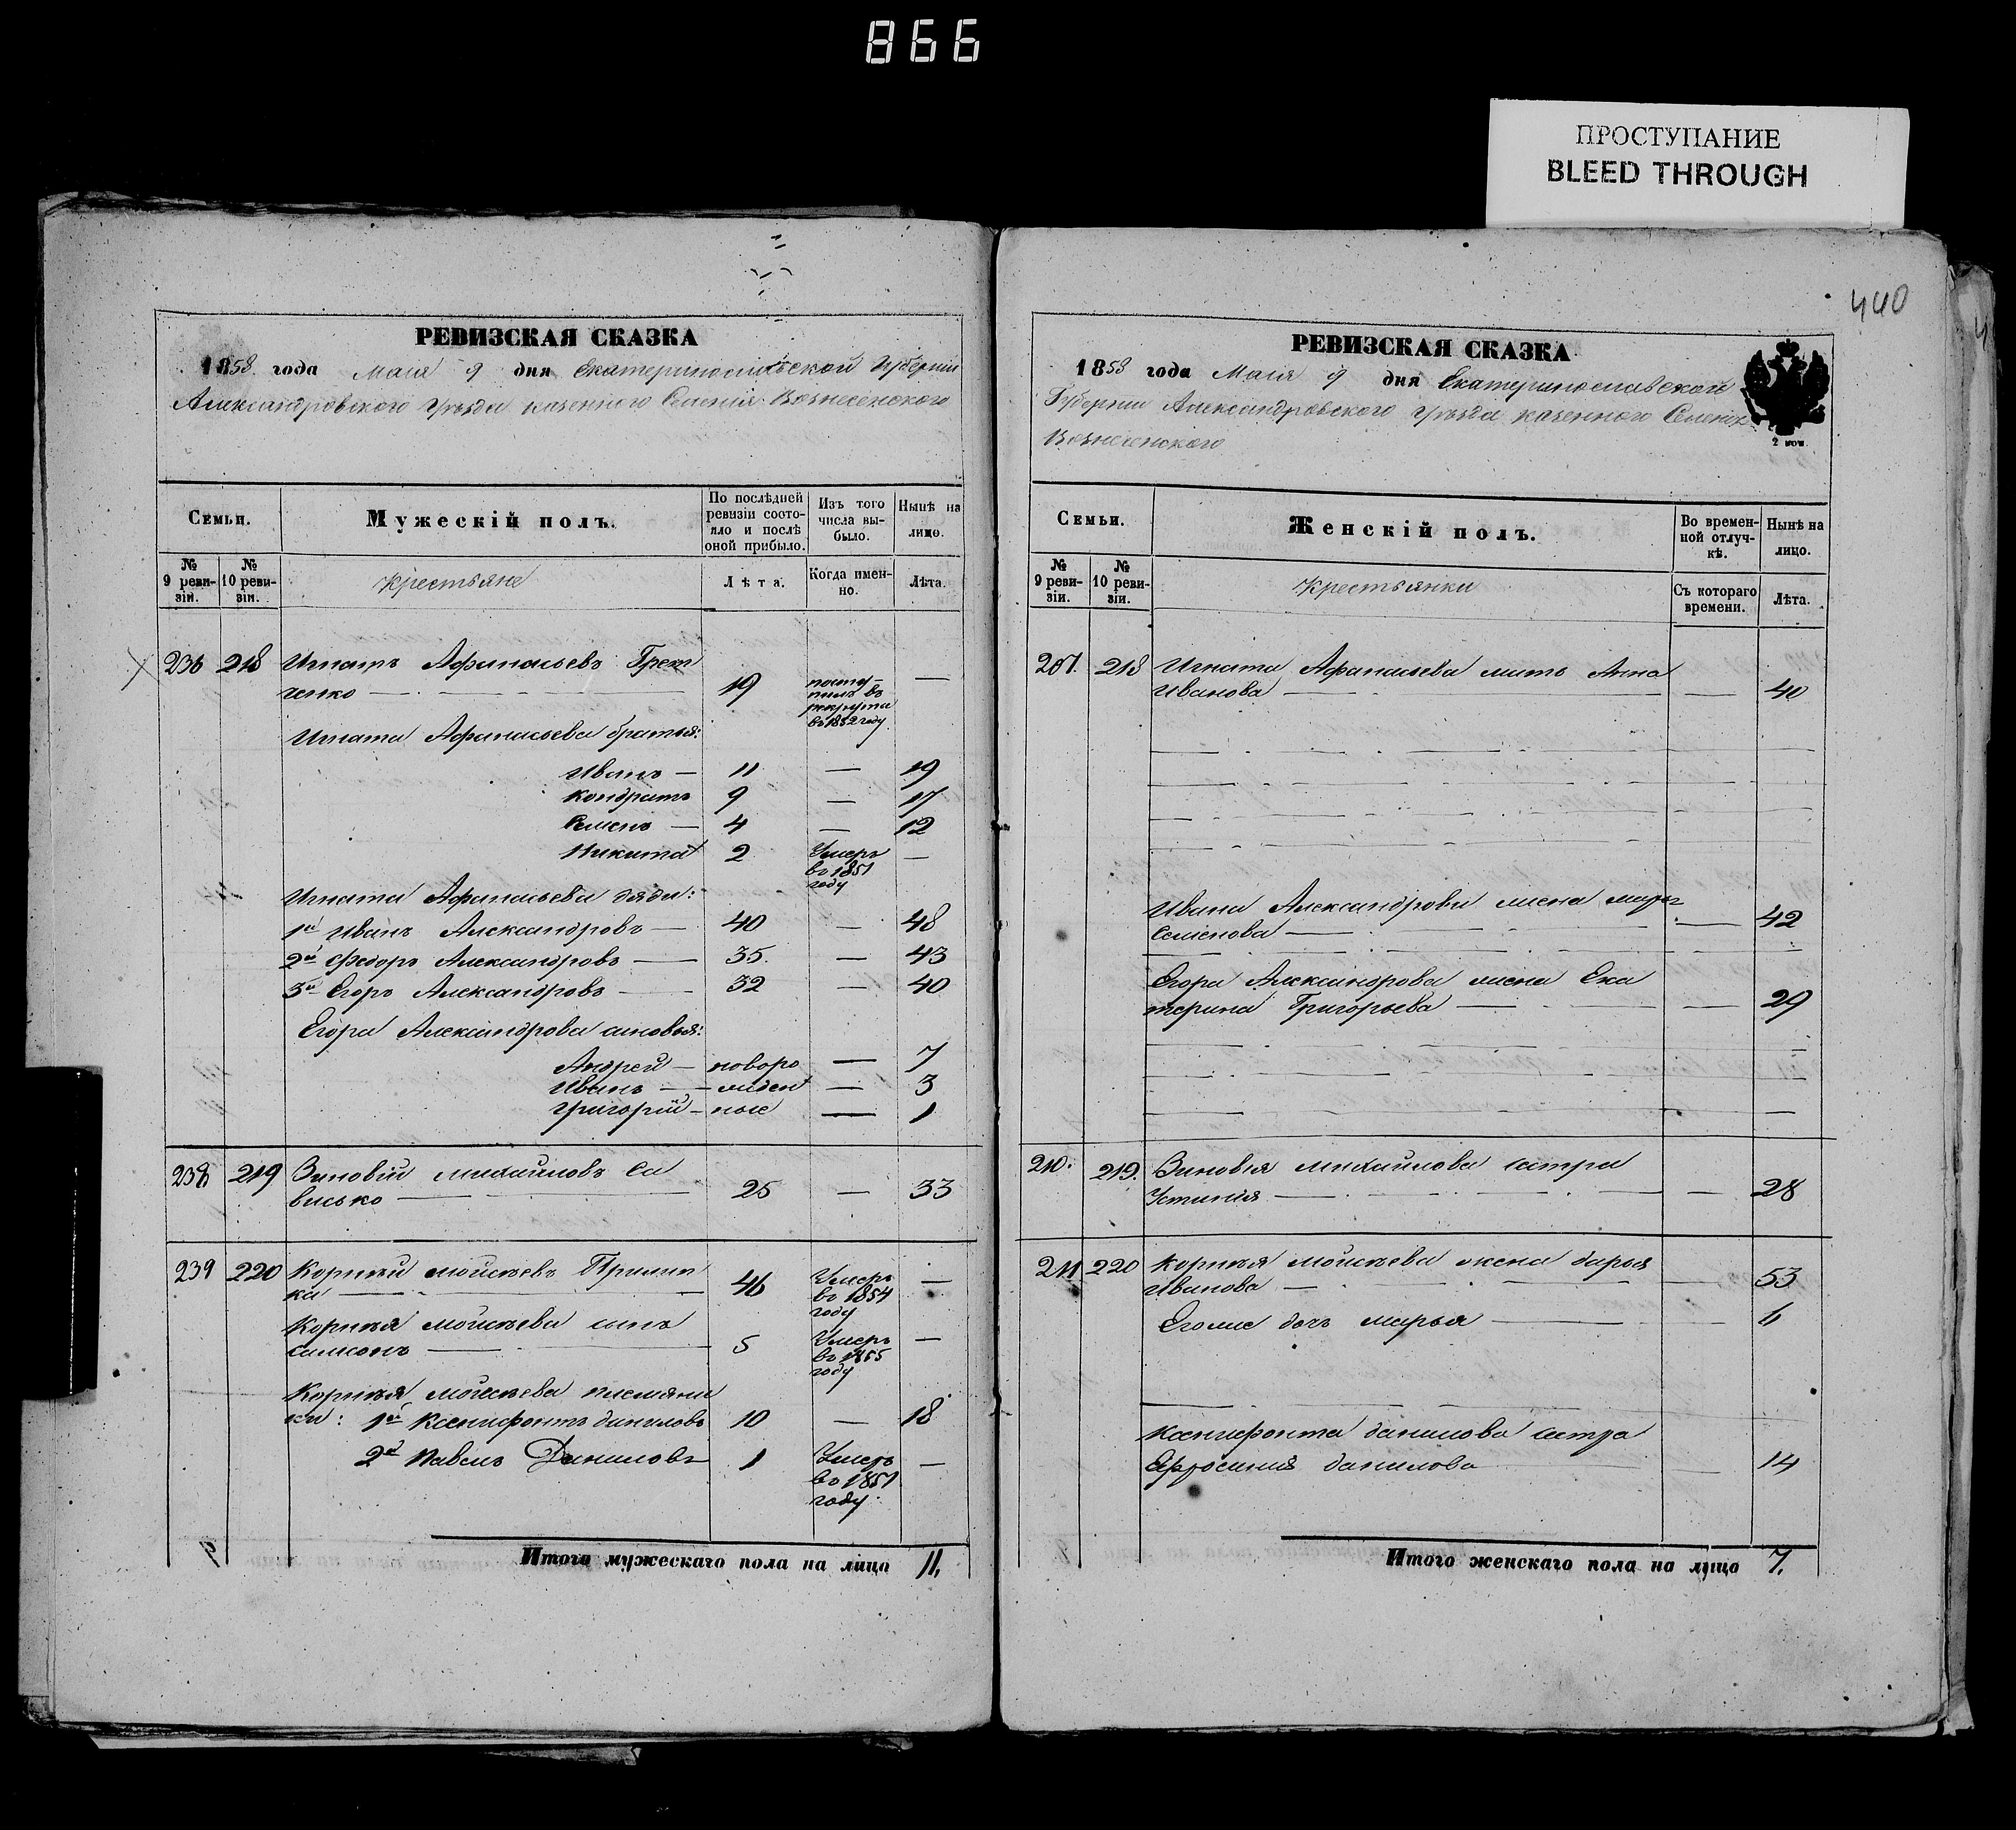 866
ПРОСТУПАНИЕ
BLEED THROUGH
440
РЕВИЗСКАЯ СКАЗКА
1858 года Маія 9 дня Екатеринославской Губерніи
Александровского Уѣзда казенного Селенія Вознесенского
Семьи.
Мужескій полъ.
По послѣдней ревизіи состояло и послѣ оной прибыло.
Изъ того числа выбыло.
Нынѣ на лицо.
№ 9 ревизіи.
№ 10 ревизіи.
Крестьяне
Лѣта.
Когда именно.
Лѣта.
236 218 Игнатъ Афанасьевъ Грет
ченко — 19 поступилъ въ рекруты въ 1852 году —
Игната Афанасьева братья:
Иванъ — 11 — 19
Кондратъ 9 — 17
Семенъ — 4 — 12
Никита 2 Умеръ въ 1851 году —
Игната Афанасьева дяди:
1й Иванъ Александровъ — 40 — 48
2й Федоръ Александровъ — 35. — 43
3й Егоръ Александровъ — 32 — 40
Егора Александрова сыновья:
Андрей — новоро — 7
Иванъ — жден — 3
Григорій — ные — 1
238 219 Зиновій Михайловъ Са
висько — 25 — 33
239 220 Корнѣй Мойсѣевъ Прилип
ка — 46 Умеръ въ 1854 году —
Корнѣя Мойсѣева сынъ
Самсонъ — 5 Умеръ въ 1855 году —
Корнѣя Мойсѣева племянни
ки: 1й Ксенифонтъ Даниловъ 10 — 18
2й Павелъ Даниловъ 1 Умеръ въ 1851 году —
Итого мужескаго пола на лицо 11,
РЕВИЗСКАЯ СКАЗКА
1858 года Маія 9 дня Екатеринославской
Губерніи Александровского Уѣзда казенного Селенія
Вознесенского
2 коп.
Семьи.
Женскій полъ.
Во временной отлучкѣ.
Нынѣ на лицо.
№ 9 ревизіи.
№ 10 ревизіи.
Крестьянки
Съ котораго времени.
Лѣта.
207. 218 Игната Афанасьева мать Анна
Иванова — — 40
Ивана Александрова жена Марья
Семенова — — 42
Егора Александрова жена Ека
терина Григорьева — — 29
210. 219. Зиновія Михайлова сестра
Устинія — — 28
211 220 Корнѣя Мойсѣева жена Дарья
Иванова — — 53
Егоже дочь Марья — — 6
Ксенифонта Данилова сестра
Ефросинія Данилова — 14
Итого женскаго пола на лицо 7,